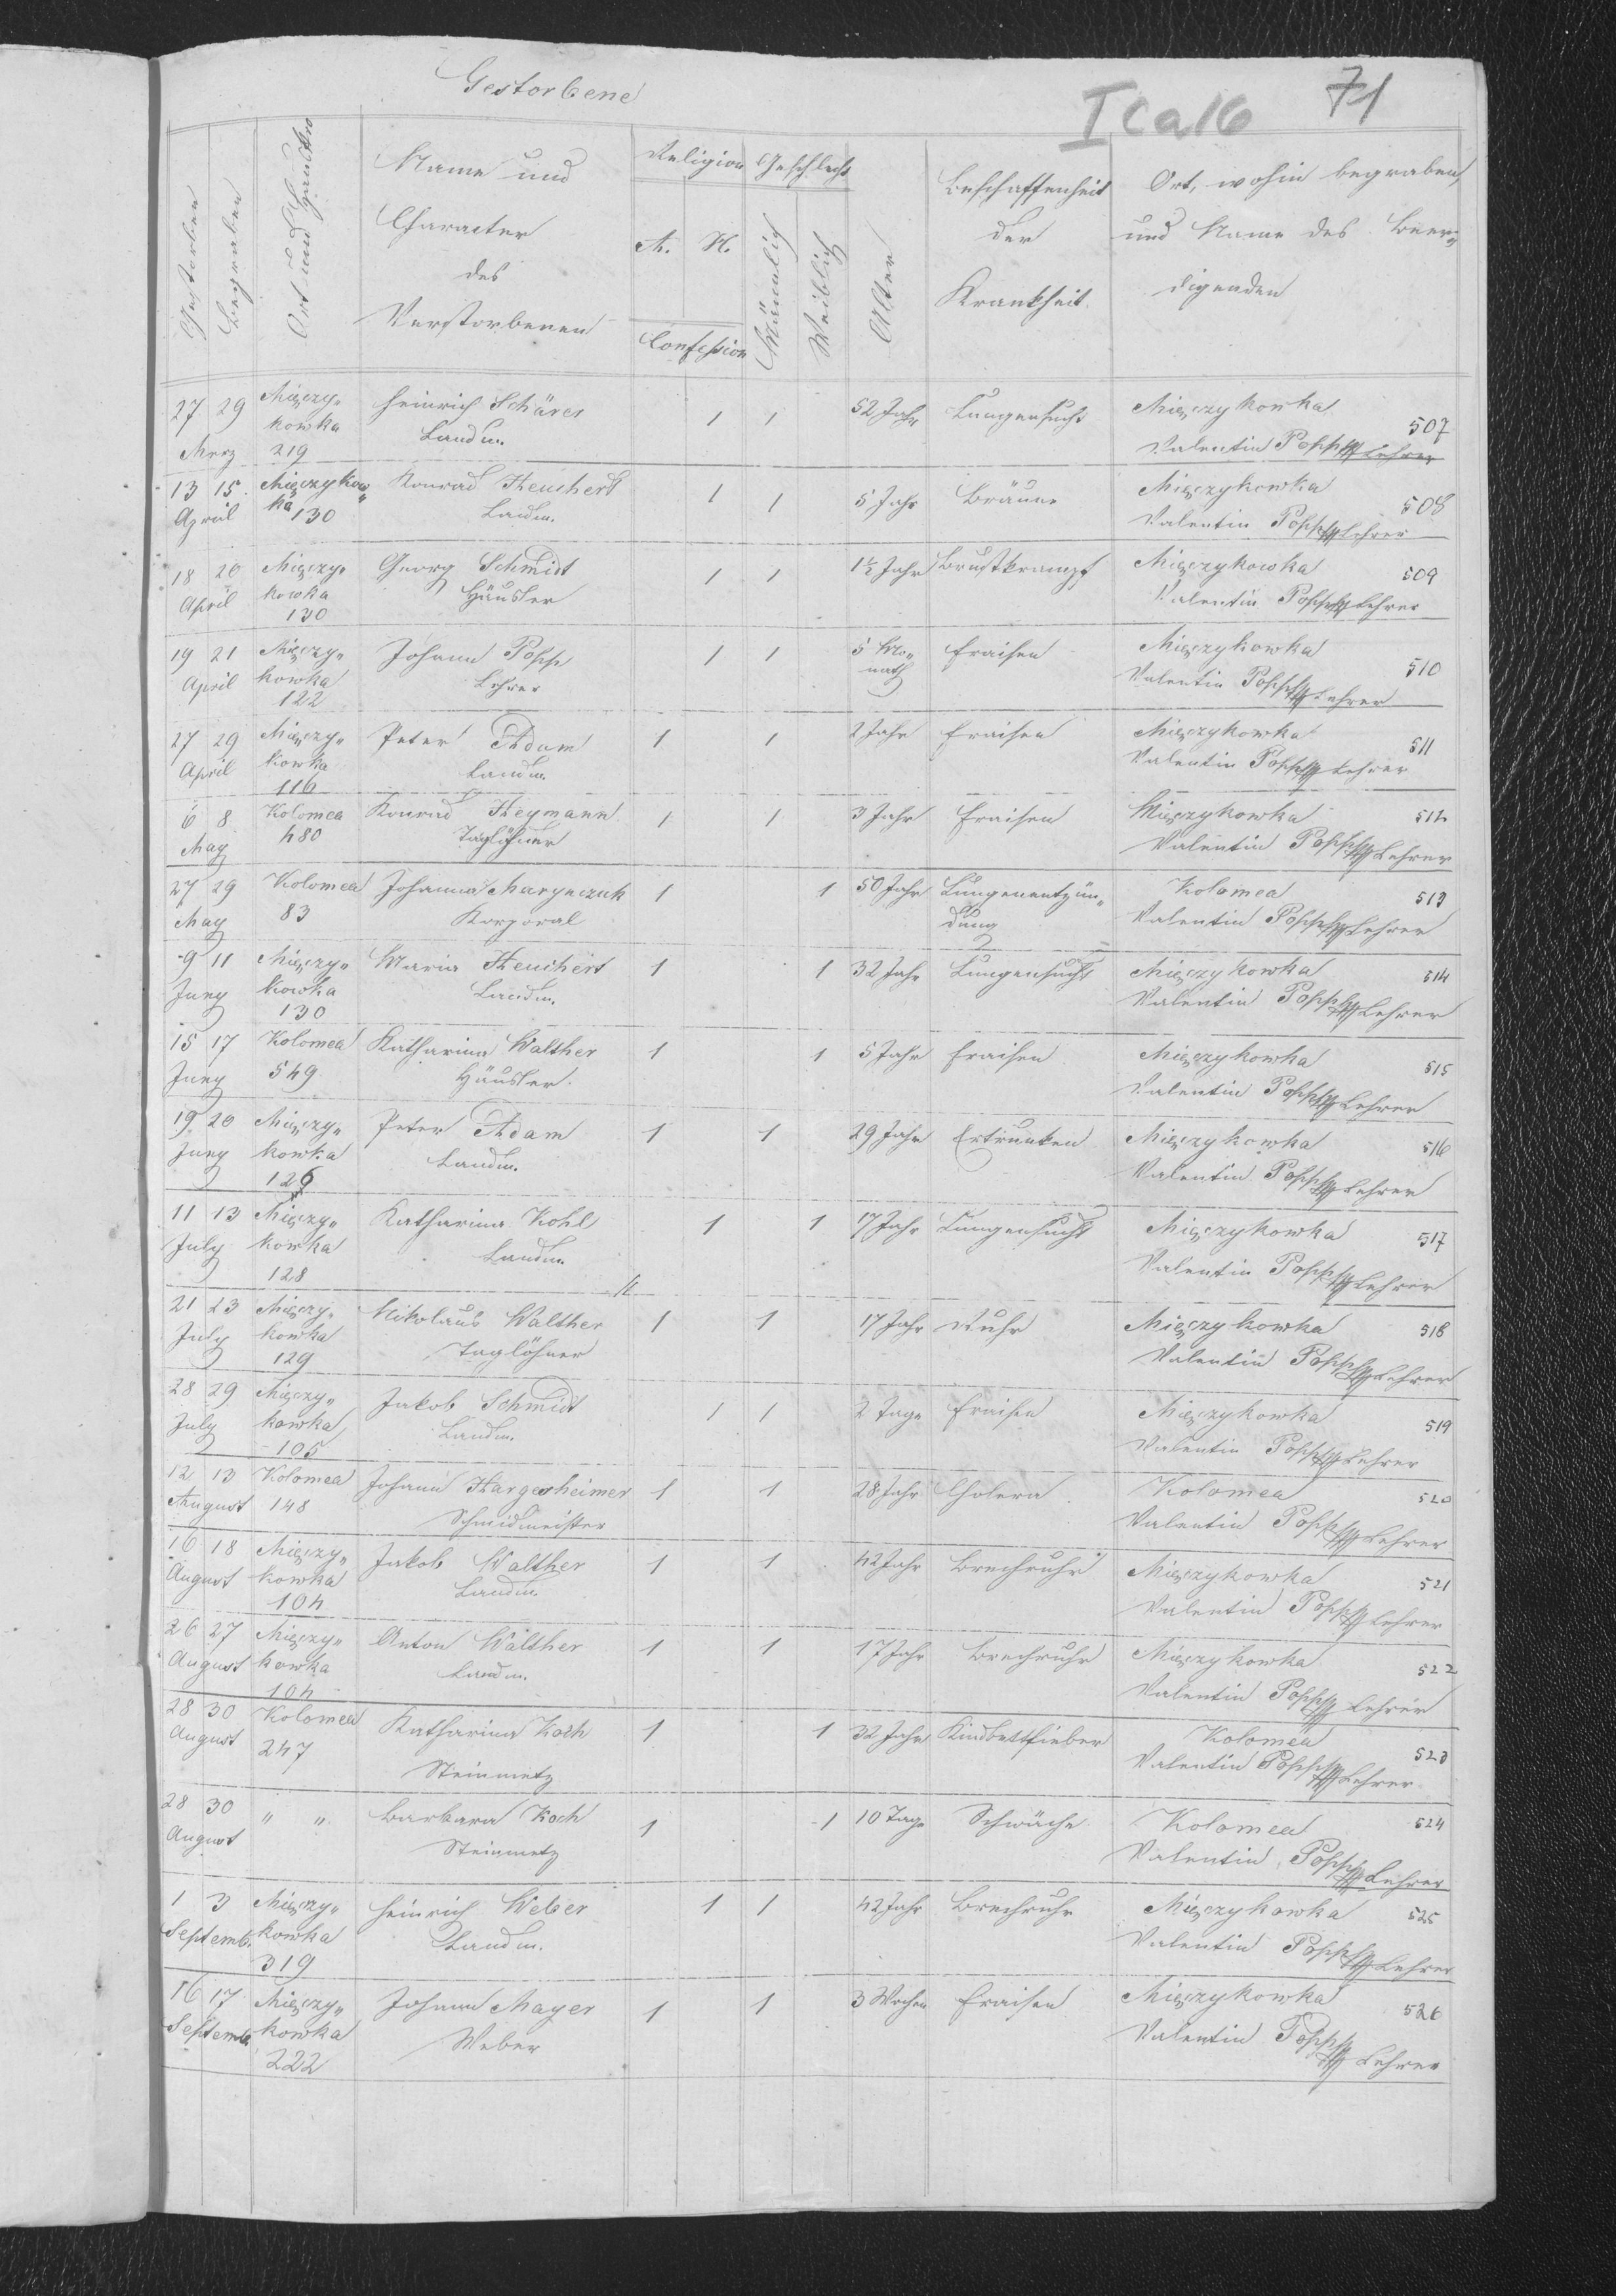 Gestorbene
I C a 16 71
Gestorben
Begraben
Ort und Haus Nro
Name und
Character
des
Verstorbenen
Religion
A. H.
Confession
Geschlecht
Männlich
Weiblich
Alter
Beschaffenheit
der
Krankheit
Ort, wohin begraben,
und Name des Beer„
digenden
27 29 Mięczy„ Heinrich Schärer 1 1 52 Jahr Lungensucht Mięczykowka
Merz kowka Landm. Valentin Popp Lehrer 507
219
13 15 Mięczykow„ Konrad Heuchert 1 1 5 Jahr Bräune Mięczykowka
April ka 130 Landm. Valentin Popp Lehrer 508
18 20 Mięczy„ Georg Schmidt 1 1 1½ Jahr Brustkrampf Mięczykowka
April kowka Häusler Valentin Popp Lehrer 509
130
19 21 Mięczy„ Johann Popp 1 1 5 Mo„ Fraisen Mięczykowka
April kowka Lehrer nath Valentin Popp Lehrer 510
122
27 29 Mięczy„ Peter Adam 1 1 2 Jahr Fraisen Mięczykowka
April kowka Landm. Valentin Popp Lehrer 511
116
6 8 Kolomea Konrad Heymann 1 1 3 Jahr Fraisen Mięczykowka 512
May 480 Taglöhner Valentin Popp Lehrer
27 29 Kolomea Johanna Marynczuk 1 1 50 Jahr Lungenentzün„ Kolomea 513
May 83 Korporal dung Valentin Popp Lehrer
9 11 Mięczy„ Maria Heuchert 1 1 32 Jahr Lungensucht Mięczykowka 514
Juny kowka Landm. Valentin Popp Lehrer
130
15 17 Kolomea Katharina Walther 1 1 5 Jahr Fraisen Mięczykowka 515
Juny 549 Häusler. Valentin Popp Lehrer
19 20 Mięczy„ Peter Adam 1 1 29 Jahr Ertrunken Mięczykowka 516
Juny kowka Landm. Valentin Popp Lehrer
126
11 13 Mięczy„ Katharina Kohl 1 1 17 Jahr Lungensucht Mięczykowka 517
July kowka Landm. Valentin Popp Lehrer
128
21 23 Mięczy„ Nikolaus Walther 1 1 17 Jahr Ruhr Mięczykowka 518
July kowka Taglöhner Valentin Popp Lehrer
129
28 29 Mięczy„ Jakob Schmidt 1 1 2 Tage Fraisen Mięczykowka 519
July kowka Landm. Valentin Popp Lehrer
105
12 13 Kolomea Johann Hargesheimer 1 1 28 Jahr Cholera Kolomea 520
August 148 Schmidmeister Valentin Popp Lehrer
16 18 Mięczy„ Jakob Walther 1 1 42 Jahr Brechruhr Mięczykowka 521
August kowka Landm. Valentin Popp Lehrer
104
26 27 Mięczy„ Anton Walther 1 1 17 Jahr Brechruhr Mięczykowka 522
August kowka Landm. Valentin Popp Lehrer
104
28 30 Kolomea Katharina Koch 1 1 32 Jahr Kindbettfieber Kolomea 523
August 247 Steinmetz Valentin Popp Lehrer
28 30 „ „ Barbara Koch 1 1 10 Tage Schwäche Kolomea 524
August Steinmetz Valentin Popp Lehrer
1 3 Mięczy„ Heinrich Weber 1 1 42 Jahr Brechruhr Mięczykowka 525
Septemb. kowka Landm. Valentin Popp Lehrer
319
16 17 Mięczy„ Johann Mayer 1 1 3 Wochen Fraisen Mięczykowka 526
Septemb kowka Weber Valentin Popp Lehrer
222